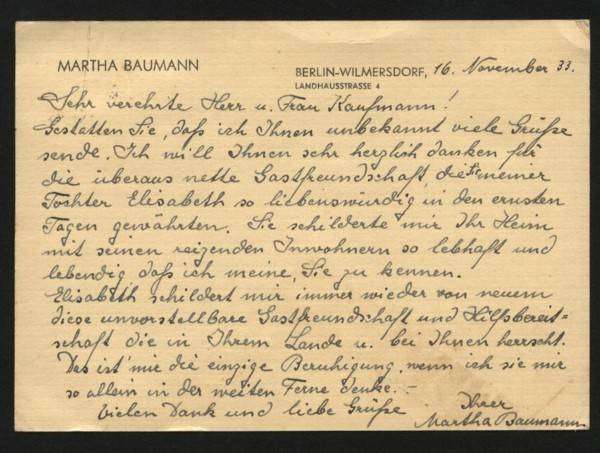 MARTHA BAUMANN
BERLIN-WILMERSDORF, 16. November 33.
LANDHAUSSTRASSE 4
Sehr verehrte Herr u. Frau Kaufmann!
Gestatten Sie, daß ich Ihnen unbekannt viele Grüße
sende. Ich will Ihnen sehr herzlich danken für
die überaus nette Gastfreundschaft, die Sie meiner
Tochter Elisabeth so liebenswürdig in den ernsten
Tagen gewährten. Sie schilderte mir Ihr Heim
mit seinen reizenden Inwohnern so lebhaft und
lebendig daß ich meine, Sie zu kennen.
Elisabeth schildert mir immer wieder von neuem
diese unvorstellbare Gastfreundschaft und Hilfsbereit-
schaft die in Ihrem Lande u. bei Ihnen herrscht.
Das ist mir die einzige Beruhigung, wenn ich sie mir
so allein in der weiten Ferne denke. –
Vielen Dank und liebe Grüße
Ihrer
Martha Baumann